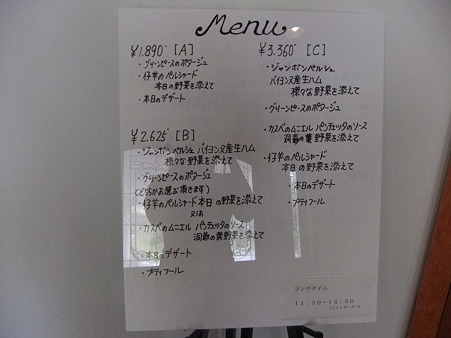 Menu
¥1.890- [A]
・グリーンピースのポタージュ
・仔羊のペルシャード
本日の野菜を添えて
・本日のデザート
¥2.625- [B]
・ジャンボンペルシュ バイヨンヌ産生ハム
様々な野菜を添えて
・グリーンピースのポタージュ
(どちらかお選び頂きます)
・仔羊のペルシャード 本日の野菜を添えて
又は
・カスベのムニエル パンチェッタのソース
洞爺の葉野菜を添えて
・本日のデザート
・プティフール
¥3.360- [C]
・ジャンボンペルシュ
バイヨンヌ産生ハム
様々な野菜を添えて
・グリーンピースのポタージュ
・カスベのムニエル パンチェッタのソース
洞爺の葉野菜を添えて
・仔羊のペルシャード
本日の野菜を添えて
・本日のデザート
・プティフール
ランチタイム
11:30~14:30